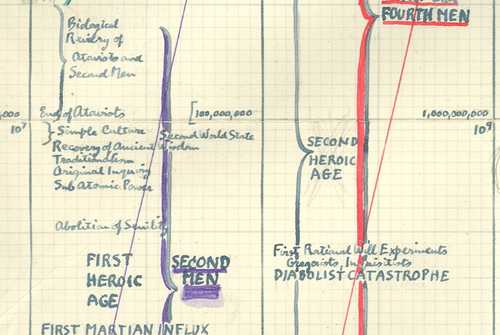 FOURTH MEN
Biological
Rivalry of
Atavists and
Second Men
End of Atavists
[100,000,000
1,000,000,000
10⁷
10⁹
Simple Culture
Second World State
Recovery of Ancient Wisdom
Traditionalism
Original Inquiry
Sub Atomic Power
SECOND
HEROIC
AGE
Abolition of Senility
First Rational Will Experiments
DIABOLIST CATASTROPHE
FIRST
HEROIC
AGE
SECOND
MEN
FIRST MARTIAN INFLUX